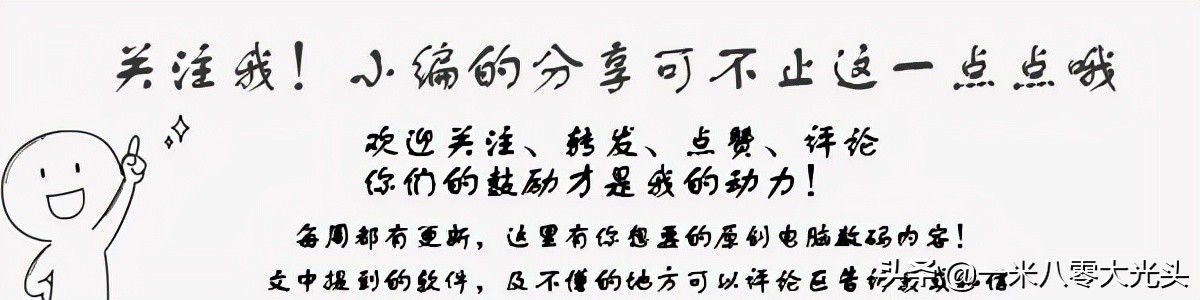 关注我！小编的分享可不止这一点点哦
欢迎关注、转发、点赞、评论
你们的鼓励才是我的动力！
每周都有更新，这里有你想要的原创电脑数码内容！
文中提到的软件，及不懂的地方可以评论区告诉我或私信
头条@一米八零大光头